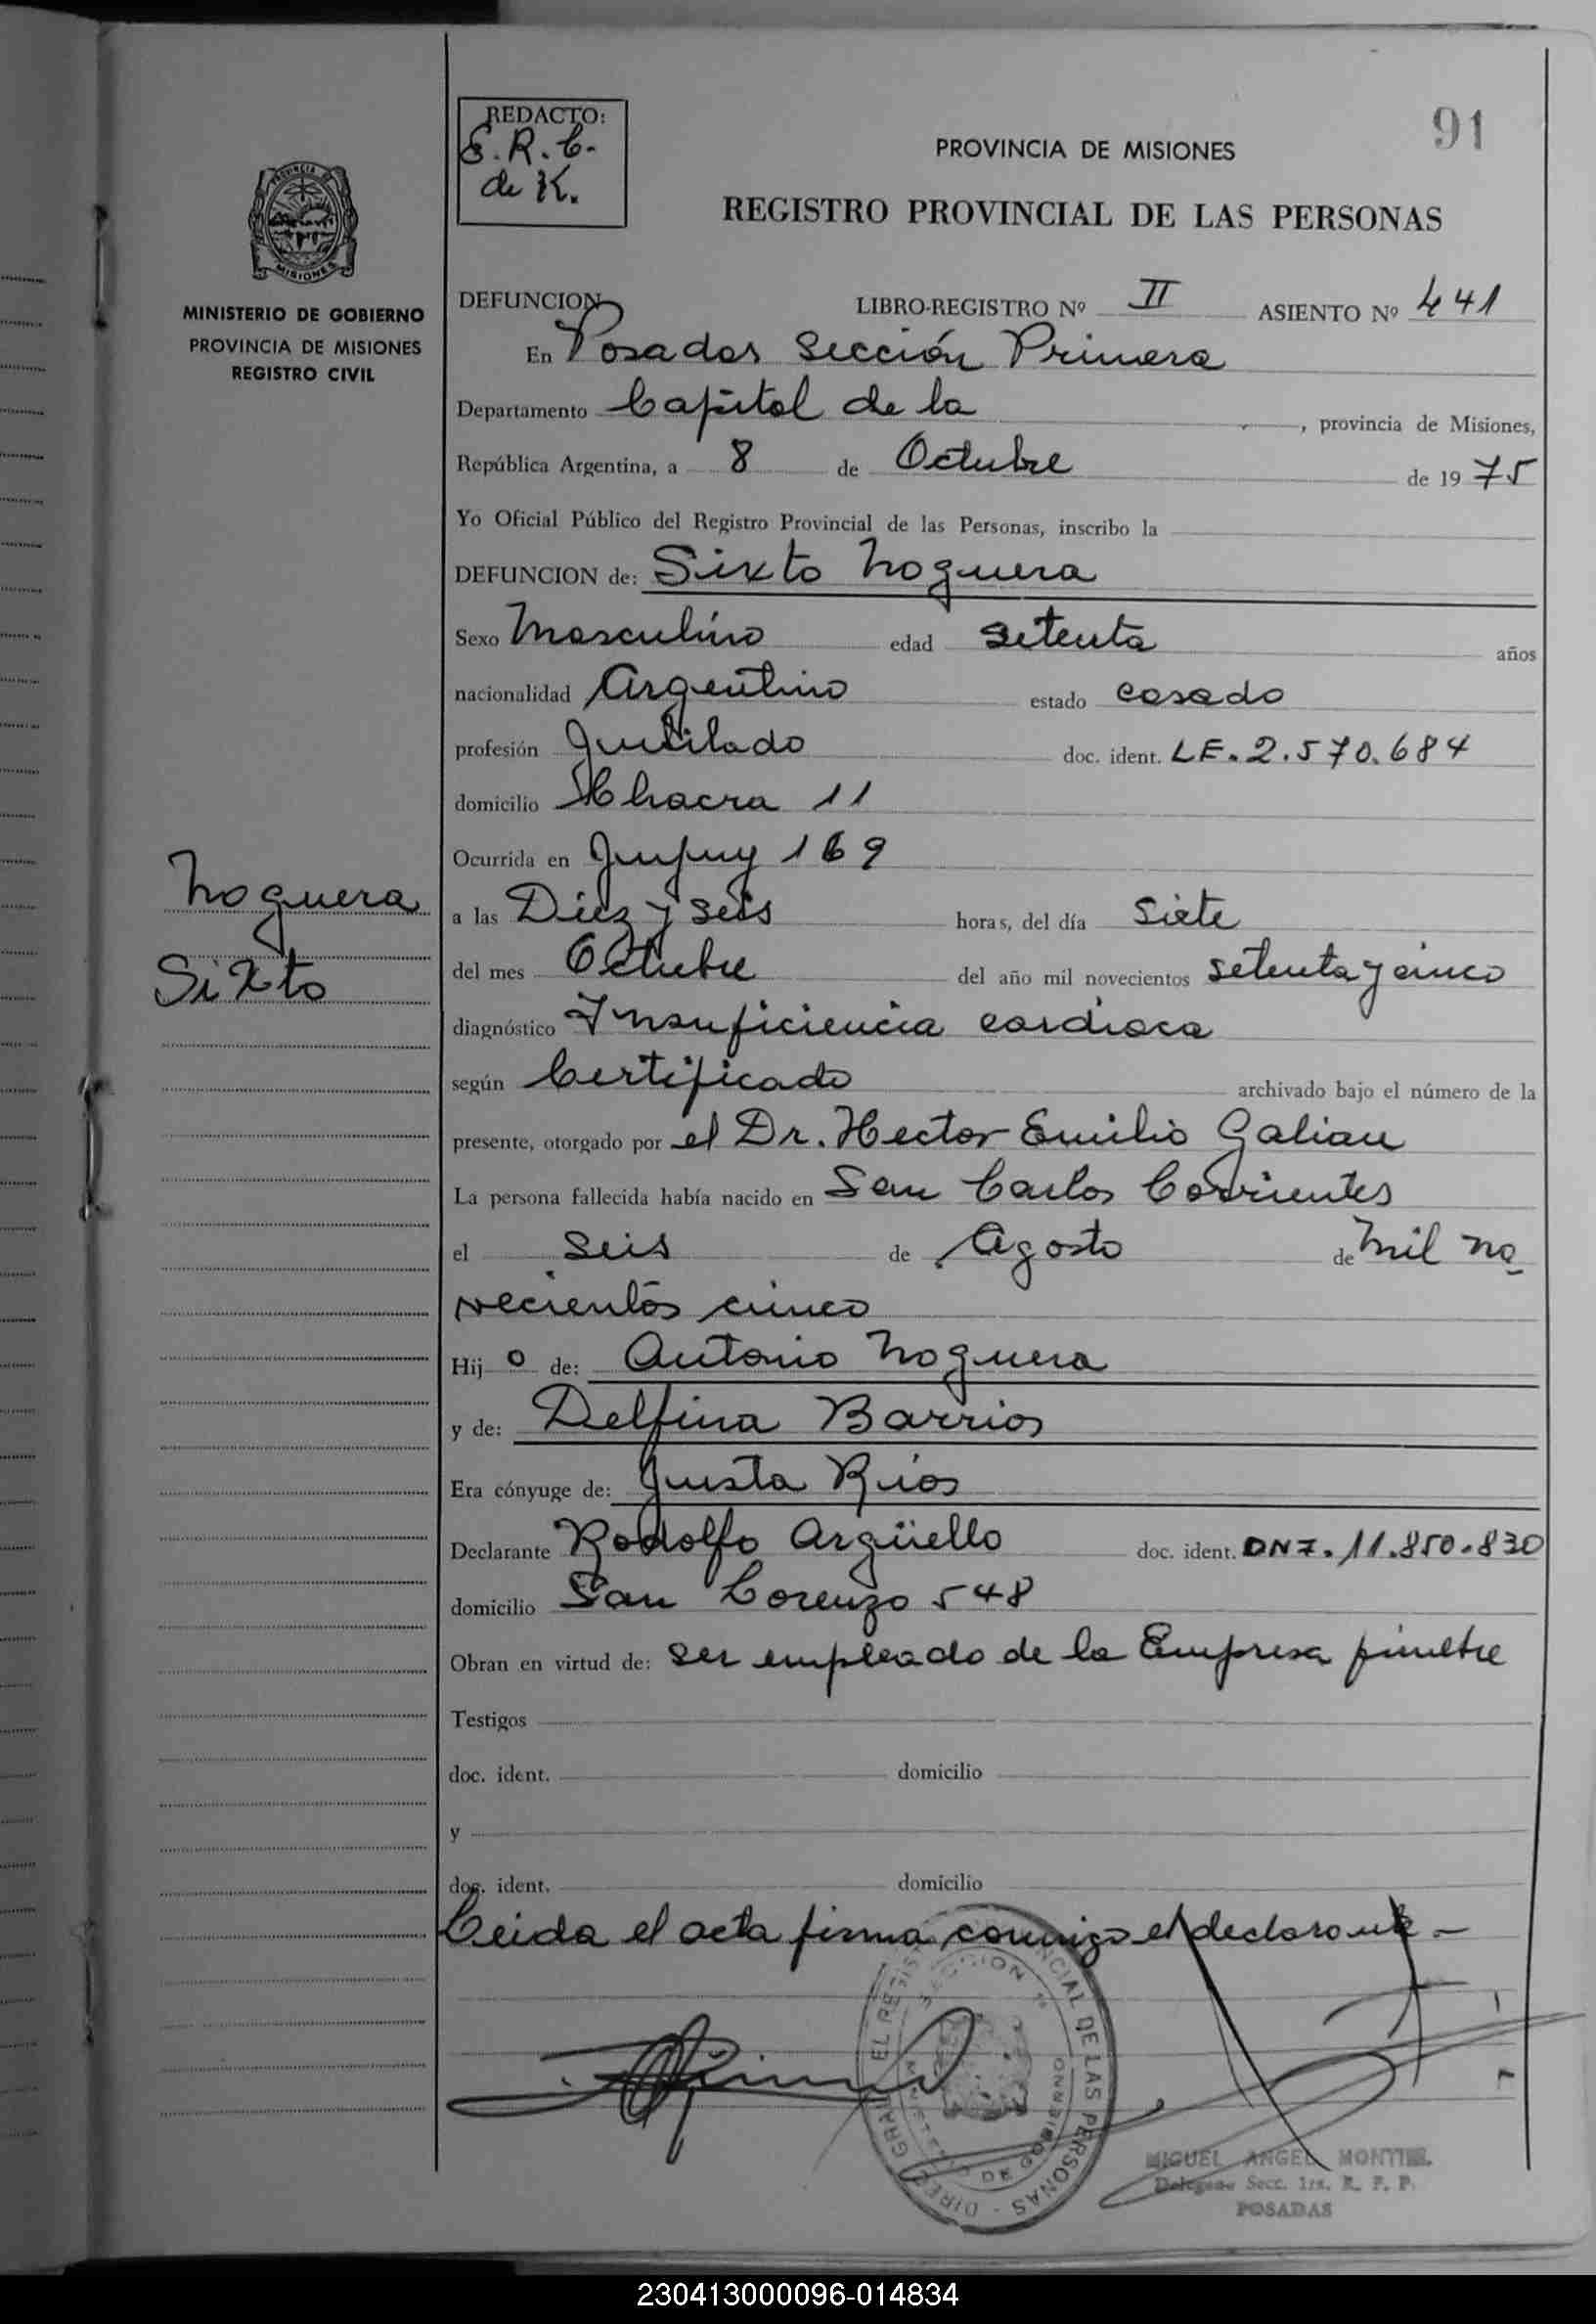 REDACTO:
E. R. C.
de K.
91
PROVINCIA DE MISIONES
REGISTRO PROVINCIAL DE LAS PERSONAS
PROVINCIA DE
MISIONES
MINISTERIO DE GOBIERNO
PROVINCIA DE MISIONES
REGISTRO CIVIL
Noguera
Sixto
DEFUNCION LIBRO-REGISTRO Nº II ASIENTO Nº 441
En Posadas Sección Primera
Departamento Capital de la , provincia de Misiones,
República Argentina, a 8 de Octubre de 1975
Yo Oficial Público del Registro Provincial de las Personas, inscribo la
DEFUNCION de: Sixto Noguera
Sexo Masculino edad setenta años
nacionalidad Argentino estado casado
profesión Jubilado doc. ident. LE. 2.570.684
domicilio Chacra 11
Ocurrida en Jujuy 169
a las Diez y seis horas, del día siete
del mes Octubre del año mil novecientos setenta y cinco
diagnóstico Insuficiencia cardiaca
según Certificado archivado bajo el número de la
presente, otorgado por el Dr. Hector Emilio Galian
La persona fallecida había nacido en San Carlos Corrientes
el seis de Agosto de mil no
vecientos cinco
Hijo de: Antonio Noguera
y de: Delfina Barrios
Era cónyuge de: Justa Rios
Declarante Rodolfo Argüello doc. ident. DNI. 11.850.830
domicilio San Lorenzo 548
Obran en virtud de: ser empleado de la Empresa fúnebre
Testigos
doc. ident. domicilio
y
doc. ident. domicilio
Leida el acta firma conmigo el declarante -
SECCION 1ª
DE LAS PERSONAS - DIREC. GRAL
MINISTERIO DE GOBIERNO
MIGUEL ANGEL MONTIEL
Delegado Secc. 1ra. R. P. P.
POSADAS
230413000096-014834